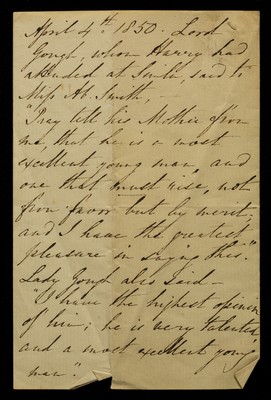 April 4th. 1850. Lord
Gough, whom Harry had
attended at Simla, said to
Miss Ab. Smith, —
"Pray tell his Mother from
me, that he is a most
excellent young man, and
one that must rise, not
from favor but by merit;
and I have the greatest
pleasure in saying this."
Lady Gough also said —
"I have the highest opinion
of him; he is very talented
and a most excellent young
man".